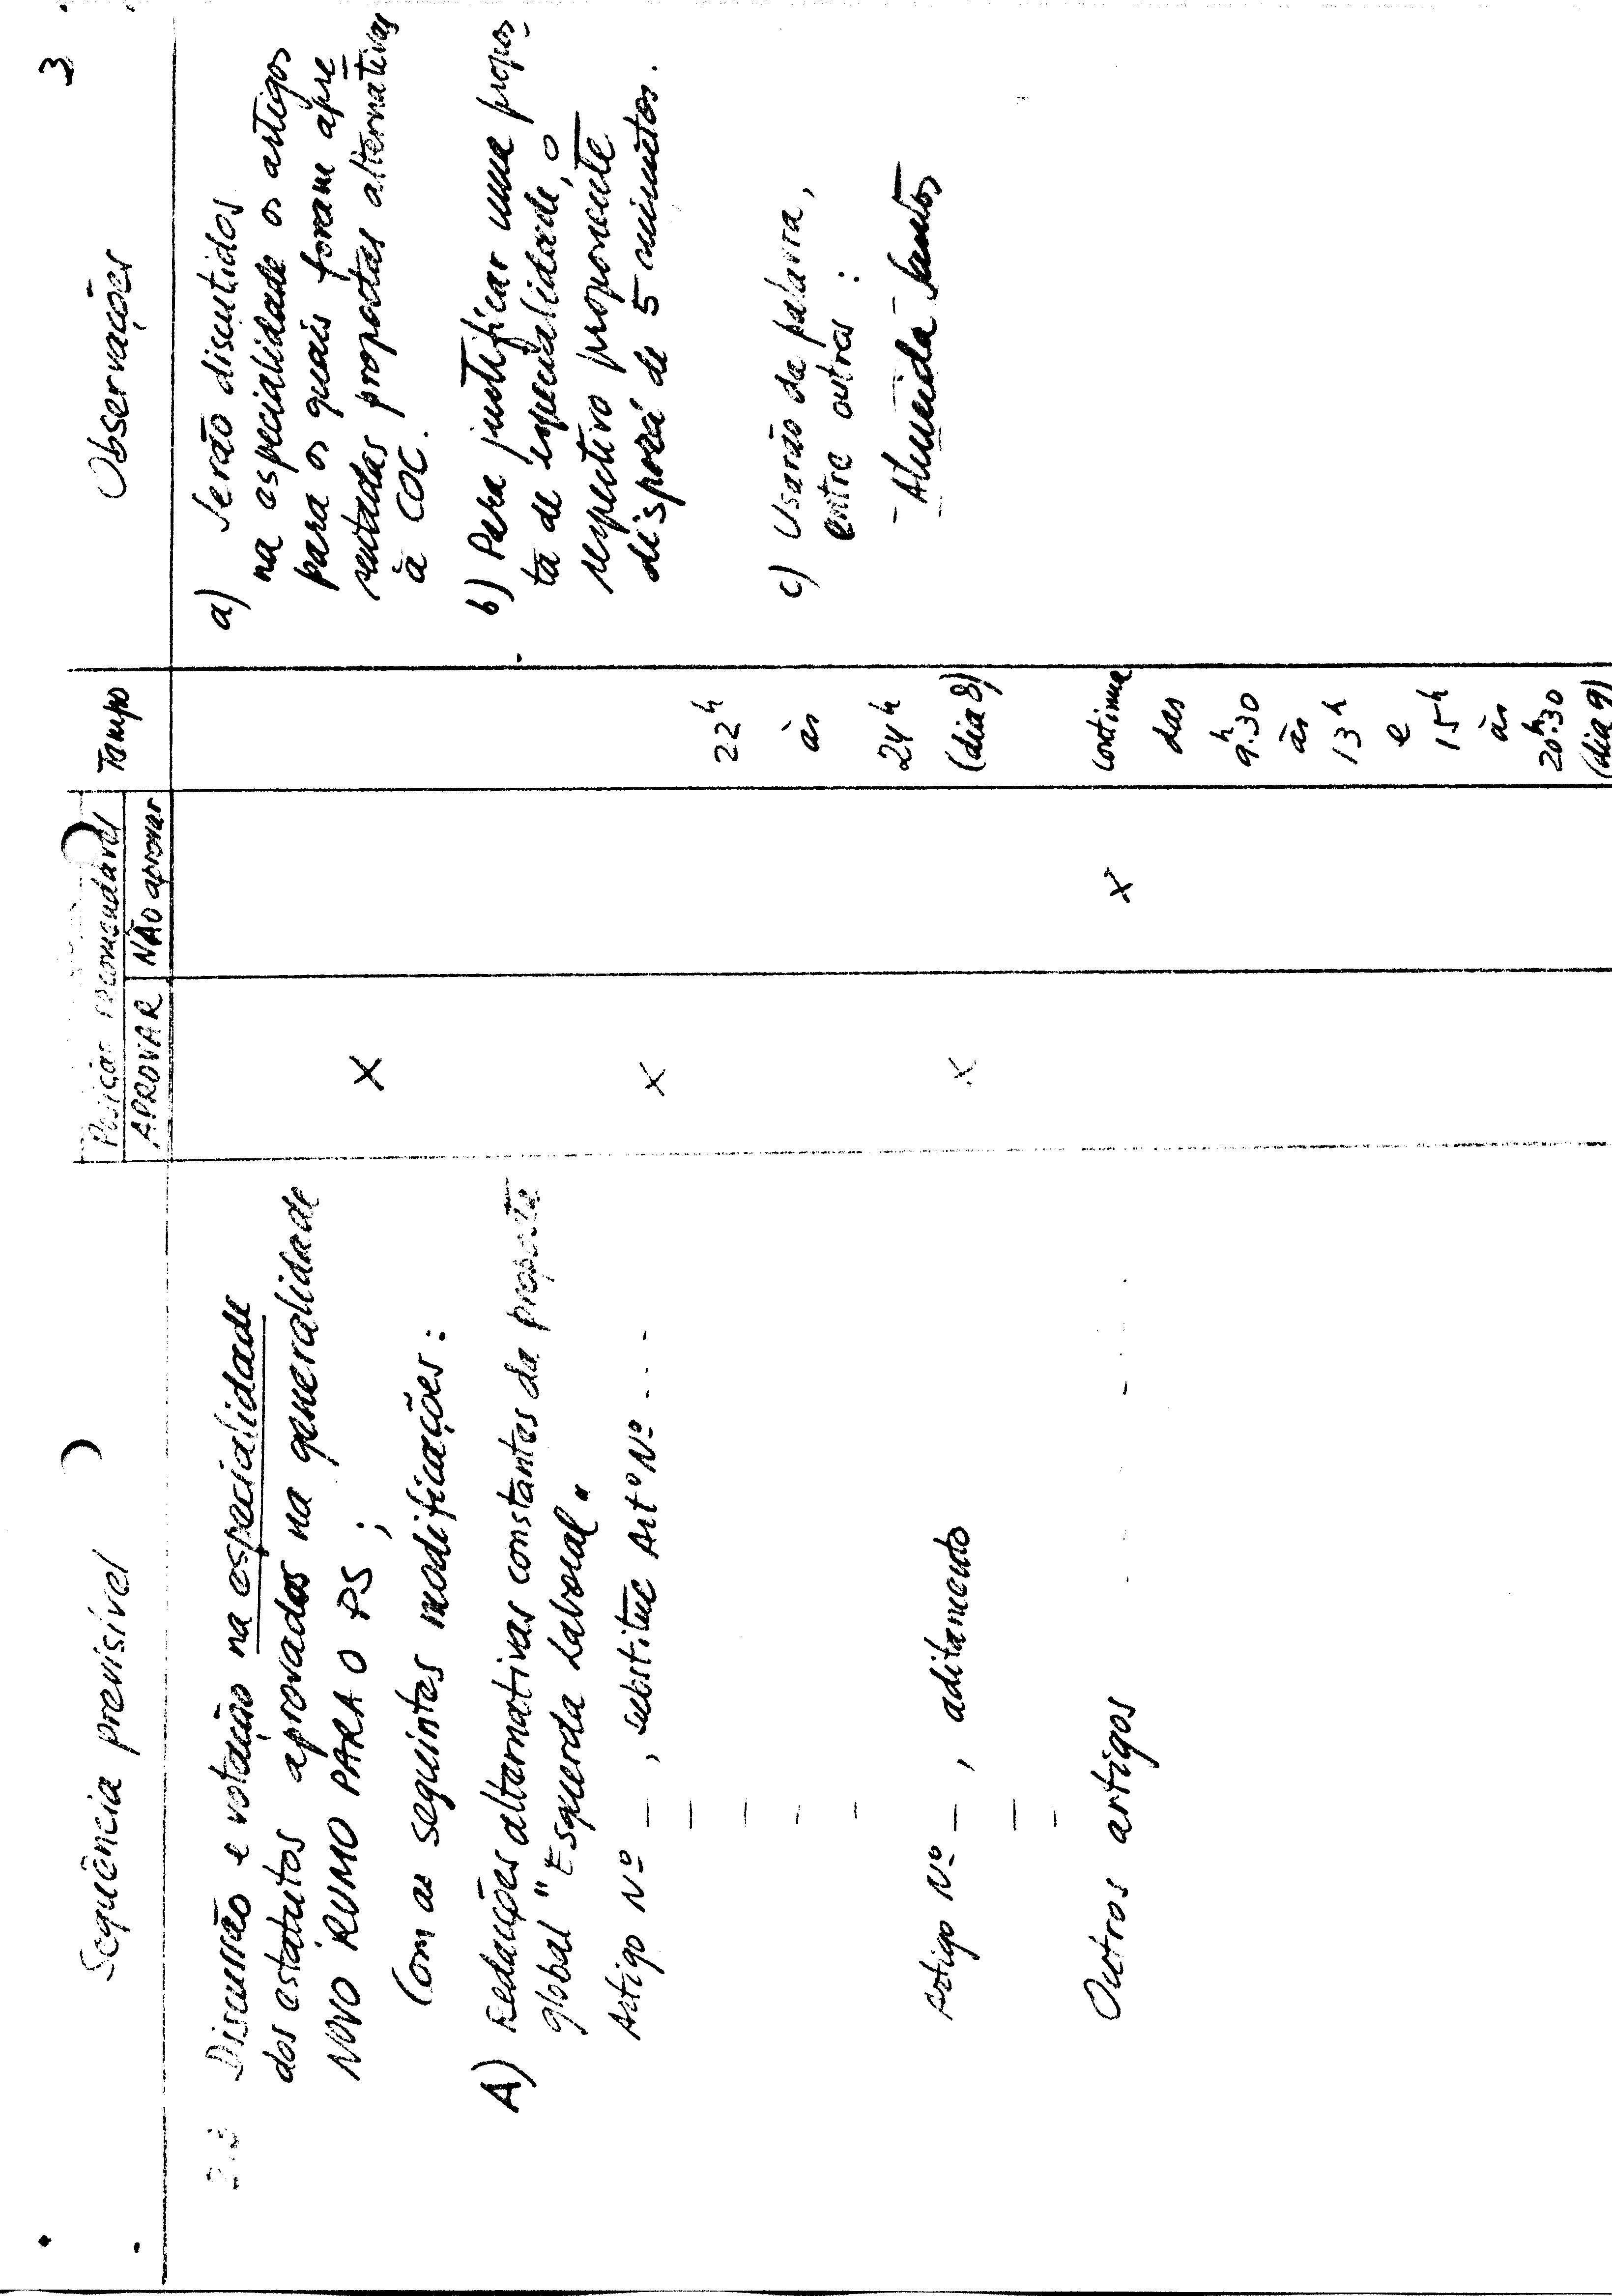 3
Sequência previsível
Posição recomendável
APROVAR
NÃO aprovar
Tempo
Observações
2.3 Discussão e votação na especialidade
dos estatutos aprovados na generalidade
NOVO RUMO PARA O PS ;
Com as seguintes modificações :
A) Redacções alternativas constantes da proposta
global "Esquerda Laboral"
Artigo Nº — , substitue Artº Nº - - - -
Artigo Nº — , aditamento
Outros artigos
X
X
X
X
22h
às
24h
(dia 8)
continua
das
9h.30
às
13h
e
15h
às
20h.30
(dia 9)
a) Serão discutidos
na especialidade os artigos
para os quais foram apre
sentadas propostas alternativas
à COC.
b) Para justificar uma propos
ta de especialidade, o
respectivo proponente
disporá de 5 minutos.
c) Usarão da palavra,
entre outros :
- Almeida Santos